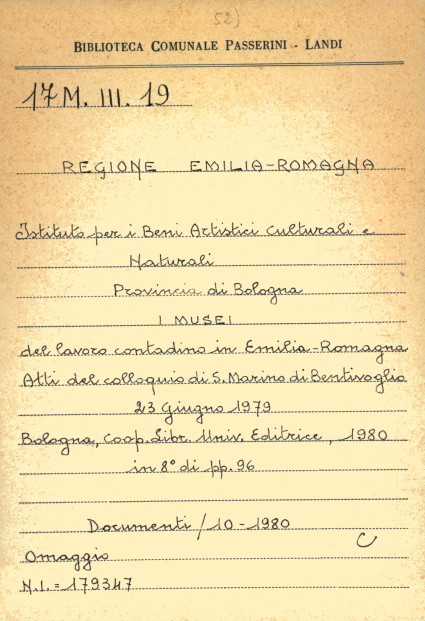 52)
BIBLIOTECA COMUNALE PASSERINI - LANDI
17 M. III. 19
REGIONE EMILIA-ROMAGNA
Istituto per i Beni Artistici Culturali e
Naturali
Provincia di Bologna
I MUSEI
del lavoro contadino in Emilia-Romagna
Atti del colloquio di S. Marino di Bentivoglio
23 Giugno 1979
Bologna, Coop. Libr. Univ. Editrice, 1980
in 8° di pp. 96
Documenti / 10 - 1980
C
Omaggio
N.I. = 179347